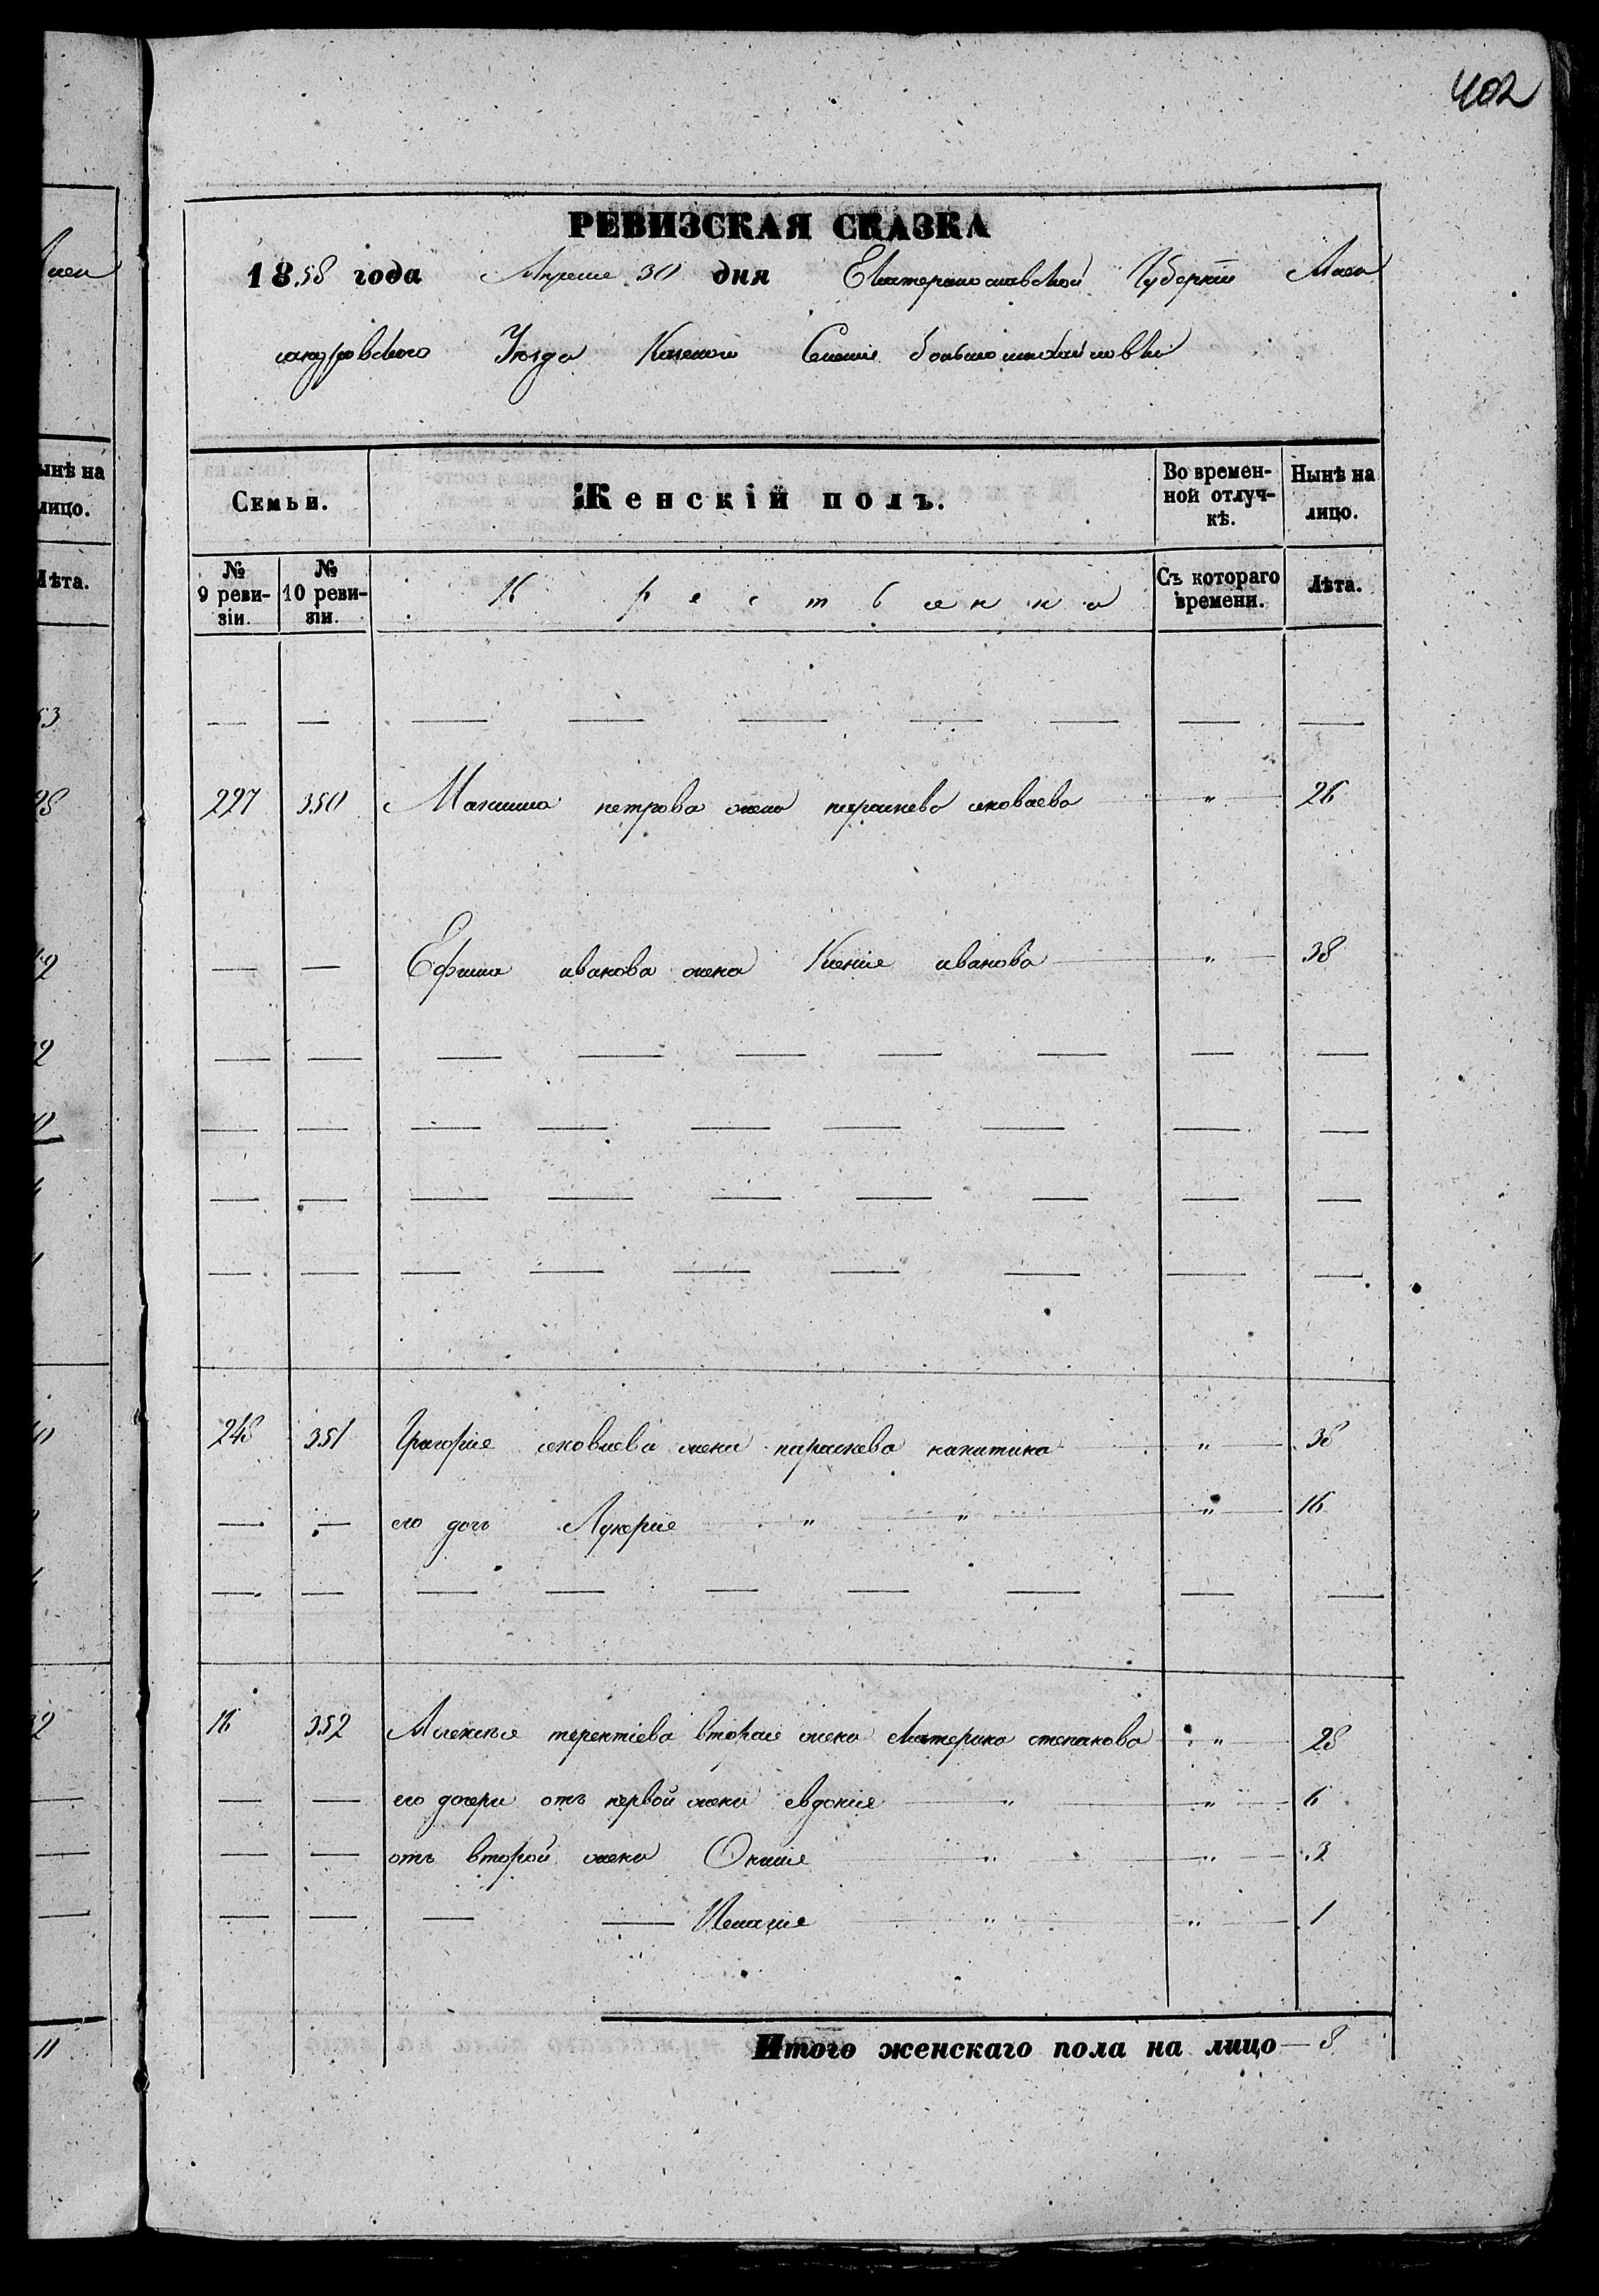 402
РЕВИЗСКАЯ СКАЗКА
1858 года Апреле 30 дня Екатеринославской Губернiи Алек
сандровского Уезда Казеного Селенiя большемихайловки
Семьи. Женскiй полъ. Во времен-ной отлуч-кѣ. Нынѣ на лицо.
№ 9 реви-зiи. № 10 реви-зiи. Крестьянка Съ котораго времени. Лѣта.
— — — — — — — — —
227 350 Максима петрова жена параскева яковлева " 26
— — Ефима иванова жена Ксенiе иванова " 38
— — — — — — — — —
— — — — — — — — —
— — — — — — — — —
— — — — — — — — —
248 351 Григорiе яковлева жена параскева никитина " 38
— — его дочь Лукерiе " " " 16
— — — — — — — — —
16 352 Алексѣя терентiева вторая жена Катерина степанова " 28
— — его дочери отъ первой жены евдокiе " " 6
— — отъ второй жены " " 3
— — — — Пелагiе " " 1
Итого женскаго пола на лицо — 8
ынѣ на
лицо.
Лѣта.
11